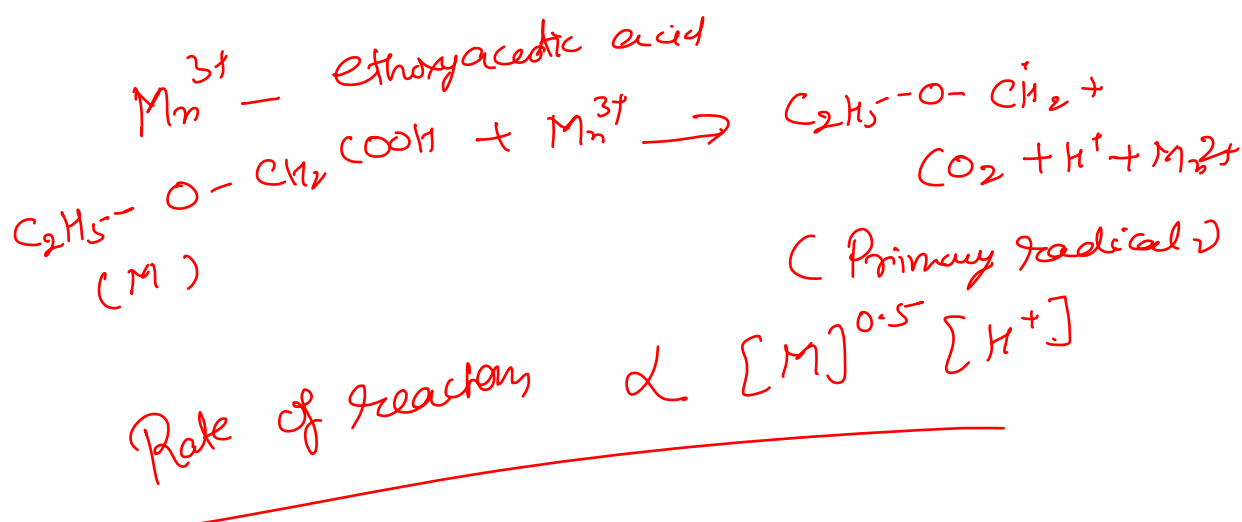 Mn³⁺ — ethoxyacetic acid
C₂H₅-- O - CH₂ COOH + Mn³⁺ ⟶ C₂H₅-- O - ĊH₂ +
CO₂ + H⁺ + Mn²⁺
(M)
(Primary radical)
Rate of reaction ∝ [M]^0.5 [H⁺]